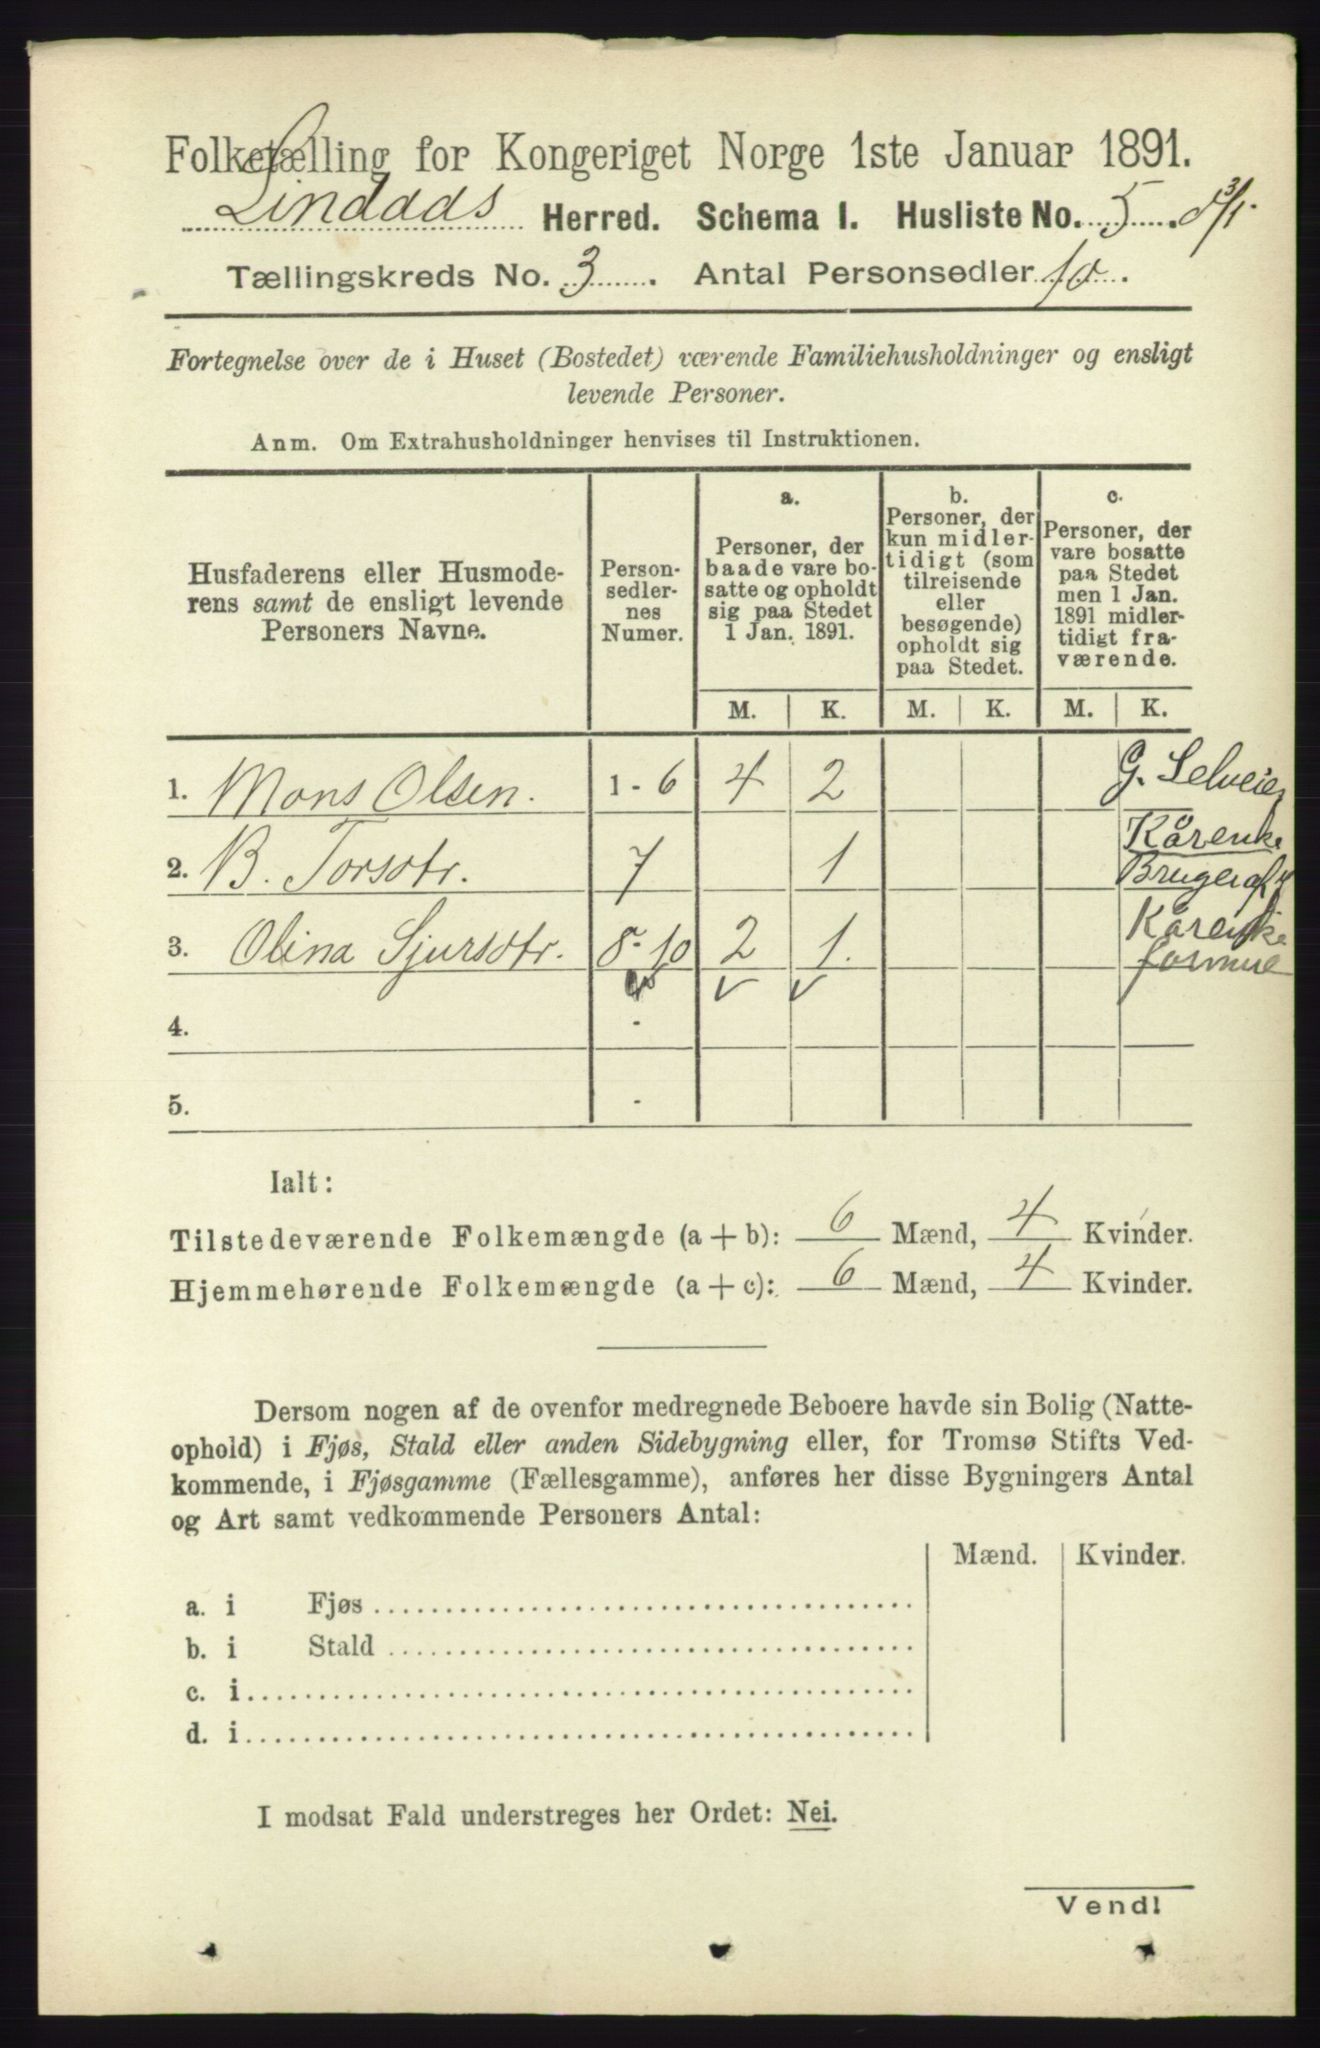 Folketælling for Kongeriget Norge 1ste Januar 1891.
Lindaas Herred. Schema I. Husliste No. 5. 3/1
Tællingskreds No. 3. Antal Personsedler 10.
Fortegnelse over de i Huset (Bostedet) værende Familiehusholdninger og ensligt
levende Personer.
Anm. Om Extrahusholdninger henvises til Instruktionen.
Husfaderens eller Husmode-
rens samt de ensligt levende
Personers Navne.
Person-
sedler-
nes
Numer.
a.
Personer, der
baade vare bo-
satte og opholdt
sig paa Stedet
1 Jan. 1891.
b.
Personer, der
kun midler-
tidigt (som
tilreisende
eller
besøgende)
opholdt sig
paa Stedet.
c.
Personer, der
vare bosatte
paa Stedet
men 1 Jan.
1891 midler-
tidigt fra-
værende.
M. K. M. K. M. K.
1. Mons Olsen. 1-6 4 2 G. Selveier
2. B. Torsdtr. 7 1 Kårenke
Brugeraf
3. Olina Sjursdtr. 8-10 2 1. Kårenke
formue
4. -
5. -
Ialt:
Tilstedeværende Folkemængde (a + b): 6 Mænd, 4 Kvinder.
Hjemmehørende Folkemængde (a + c): 6 Mænd, 4 Kvinder.
Dersom nogen af de ovenfor medregnede Beboere havde sin Bolig (Natte-
ophold) i Fjøs, Stald eller anden Sidebygning eller, for Tromsø Stifts Ved-
kommende, i Fjøsgamme (Fællesgamme), anføres her disse Bygningers Antal
og Art samt vedkommende Personers Antal:
Mænd. Kvinder.
a. i Fjøs
b. i Stald
c. i
d. i
I modsat Fald understreges her Ordet: Nei.
Vend!